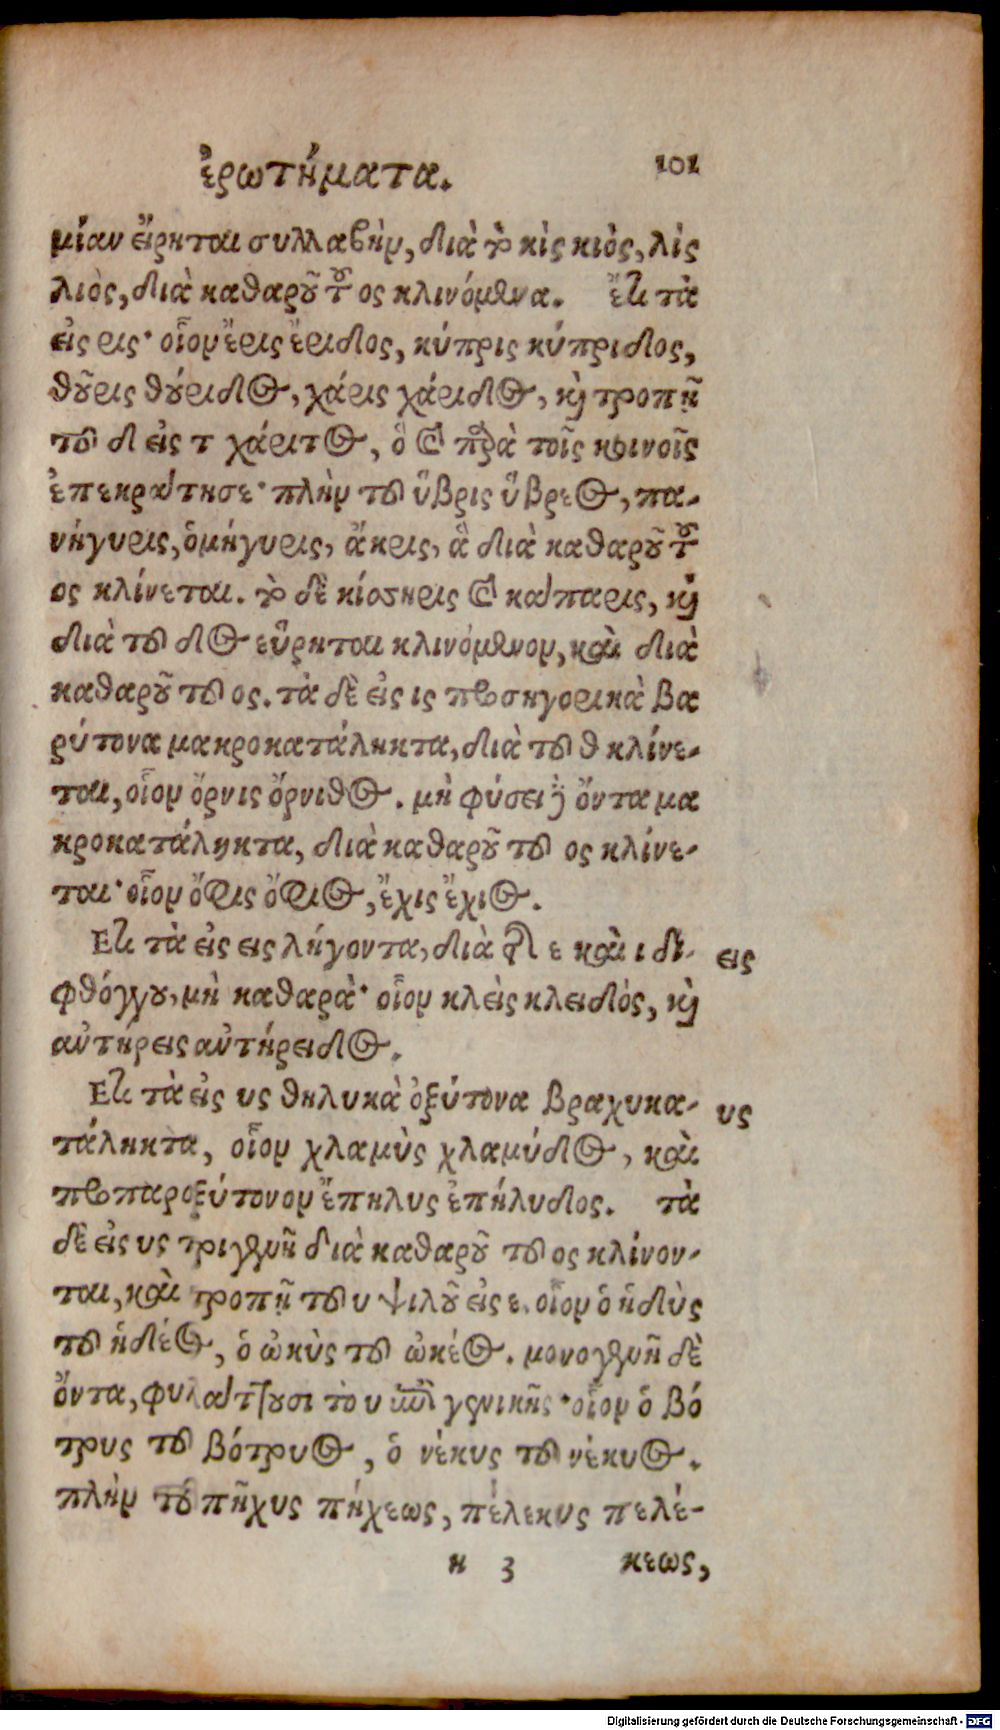 ἐρωτήματα. 101
μίαν εἴρηται συλλαβὴν, διὰ τὸ κὶς κιὸς, λὶς
λιὸς, διὰ καθαροῦ τοῦ ος κλινόμενα. ἔτι τὰ
εἰς ρις· οἷον ἔρις ἔριδος, κύπρις κύπριδος,
θοῦρις θούριδος, χάρις χάριδος, καὶ τροπῇ
τοῦ δ εἰς τ χάριτος, ὃ καὶ παρὰ τοῖς κοινοῖς
ἐπεκράτησε· πλὴν τοῦ ὕβρις ὕβρεος, πα-
νήγυρις, ὁμήγυρις, ἄκρις, ἃ διὰ καθαροῦ τοῦ
ος κλίνεται. τὸ δὲ κίσσηρις καὶ κάππαρις, καὶ
διὰ τοῦ δος εὕρηται κλινόμενον, καὶ διὰ
καθαροῦ τοῦ ος. τὰ δὲ εἰς ις προσηγορικὰ βα
ρύτονα μακροκατάληκτα, διὰ τοῦ θ κλίνε-
ται, οἷον ὄρνις ὄρνιθος. μὴ φύσει δὲ ὄντα μα
κροκατάληκτα, διὰ καθαροῦ τοῦ ος κλίνε-
ται· οἷον ὄφις ὄφιος, ἔχις ἔχιος.
Ετι τὰ εἰς εις λήγοντα, διὰ τῆς ε καὶ ι δι- εις
φθόγγου, μὴ καθαρὰ· οἷον κλεὶς κλειδὸς, καὶ
αὐτήρεις αὐτήρειδος.
Ετι τὰ εἰς υς θηλυκὰ ὀξύτονα βραχυκα- υς
τάληκτα, οἷον χλαμὺς χλαμύδος, καὶ
προπαροξύτονον ἔπηλυς ἐπήλυδος. τὰ
δὲ εἰς υς τριγενῆ διὰ καθαροῦ τοῦ ος κλίνον-
ται, καὶ τροπῇ τοῦ υ ψιλοῦ εἰς ε. οἷον ὁ ἡδὺς
τοῦ ἡδέος, ὁ ὠκὺς τοῦ ὠκέος. μονογενῆ δὲ
ὄντα, φυλάττουσι τὸ υ ἐπὶ γενικῆς· οἷον ὁ βό
τρυς τοῦ βότρυος, ὁ νέκυς τοῦ νέκυος.
πλὴν τοῦ πῆχυς πήχεως, πέλεκυς πελέ-
κ 3 κεως,
Digitalisierung gefördert durch die Deutsche Forschungsgemeinschaft - DFG